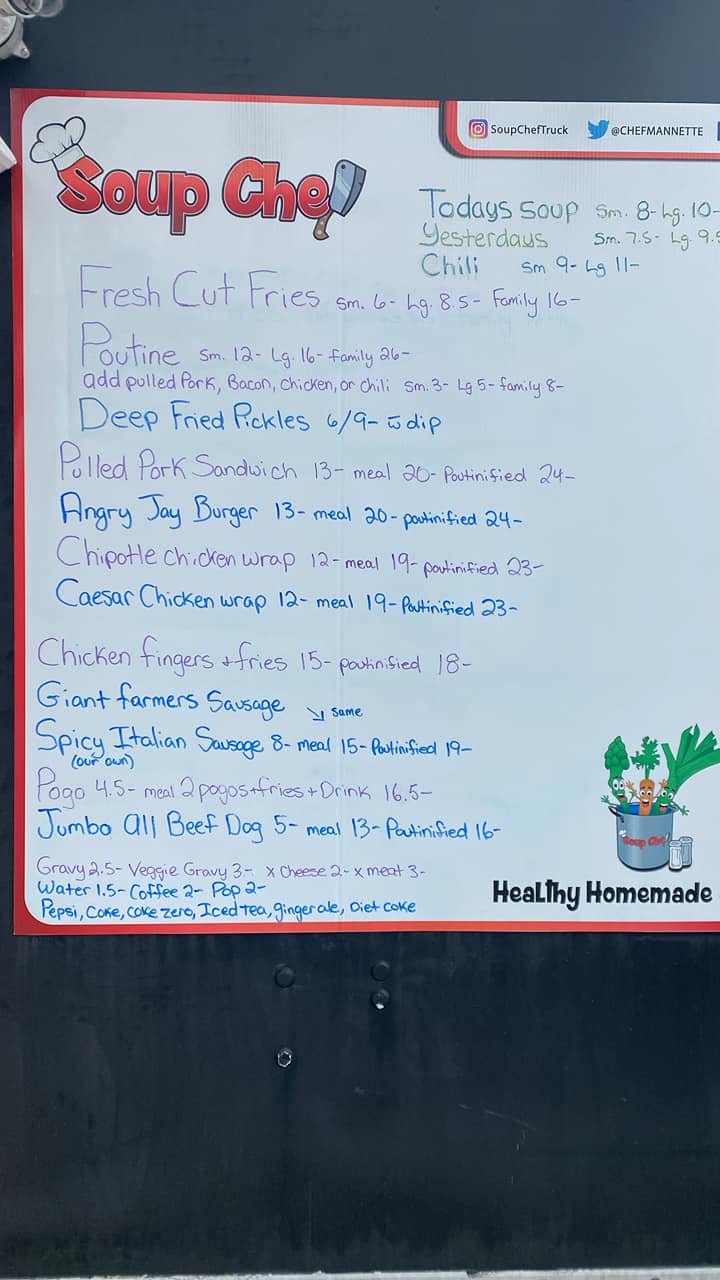 SoupChefTruck @CHEFMANNETTE
Soup Chef
Todays Soup Sm. 8- Lg. 10-
Yesterdays Sm. 7.5- Lg. 9.5
Chili Sm 9- Lg 11-
Fresh Cut Fries Sm. 6- Lg. 8.5- Family 16-
Poutine Sm. 12- Lg. 16- family 26-
add pulled Pork, Bacon, Chicken, or Chili Sm. 3- Lg 5- family 8-
Deep Fried Pickles 6/9- w dip
Pulled Pork Sandwich 13- meal 20- Poutinified 24-
Angry Jay Burger 13- meal 20- poutinified 24-
Chipotle chicken wrap 12- meal 19- poutinified 23-
Caesar Chicken wrap 12- meal 19- Poutinified 23-
Chicken fingers + fries 15- poutinified 18-
Giant farmers Sausage ↘ Same
Spicy Italian Sausage 8- meal 15- Poutinified 19-
(our own)
Pogo 4.5- meal 2 pogos + fries + Drink 16.5-
Jumbo All Beef Dog 5- meal 13- Poutinified 16-
Gravy 2.5- Veggie Gravy 3- x Cheese 2- x meat 3-
Water 1.5- Coffee 2- Pop 2-
Pepsi, Coke, Coke zero, Iced Tea, ginger ale, Diet coke
Soup Chef
Healthy Homemade